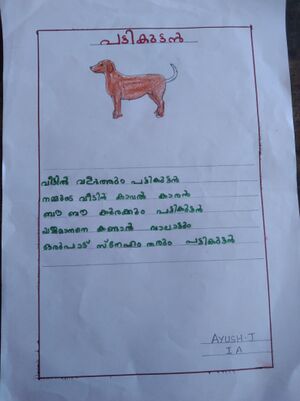 പട്ടികുട്ടൻ
വീട്ടിൽ വളരത്തും പട്ടികുട്ടൻ
നമ്മുടെ വീടിൻ കാവൽ കാരൻ
ബൗ ബൗ കുരക്കും പട്ടികുട്ടൻ
യജമാനനെ കണ്ടാൽ വാലാട്ടും
ഒരുപാട് സ്നേഹം തരും പട്ടികുട്ടൻ
AYUSH.T
I A